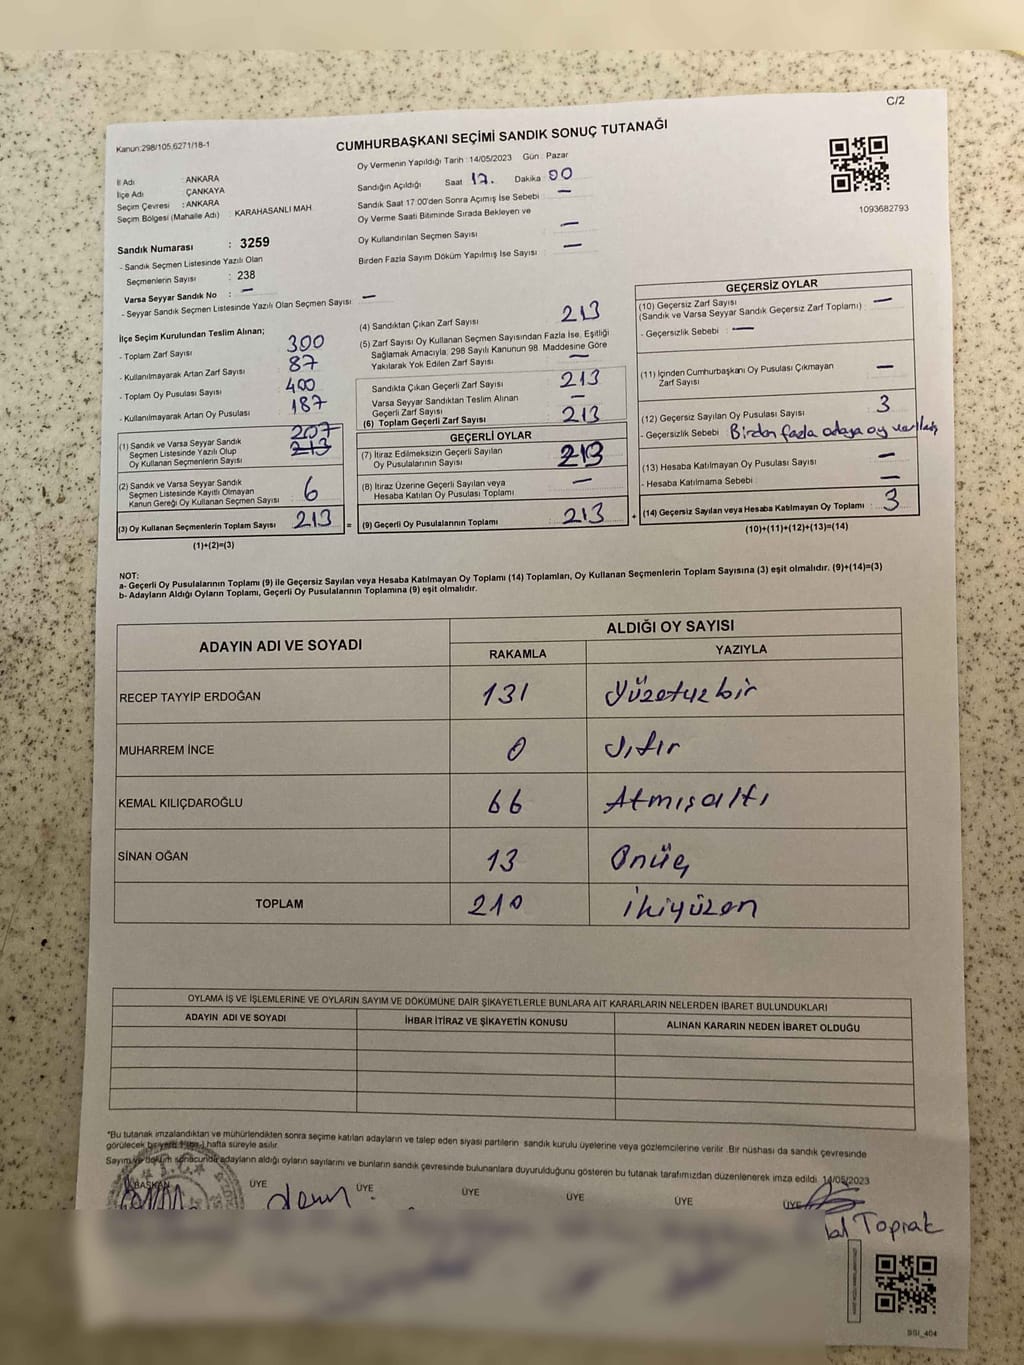 C/2
Kanun:298/105,6271/18-1
CUMHURBAŞKANI SEÇİMİ SANDIK SONUÇ TUTANAĞI
Oy Vermenin Yapıldığı Tarih : 14/05/2023 Gün : Pazar
1093682793
İl Adı : ANKARA
İlçe Adı : ÇANKAYA
Seçim Çevresi : ANKARA
Seçim Bölgesi (Mahalle Adı) : KARAHASANLI MAH.
Sandığın Açıldığı Saat 17. Dakika 00
Sandık Saat 17:00'den Sonra Açımış İse Sebebi : —
Oy Verme Saati Bitiminde Sırada Bekleyen ve
Oy Kullandırılan Seçmen Sayısı : —
Birden Fazla Sayım Döküm Yapılmış İse Sayısı : —
Sandık Numarası : 3259
- Sandık Seçmen Listesinde Yazılı Olan
Seçmenlerin Sayısı : 238
Varsa Seyyar Sandık No : —
- Seyyar Sandık Seçmen Listesinde Yazılı Olan Seçmen Sayısı: —
İlçe Seçim Kurulundan Teslim Alınan;
- Toplam Zarf Sayısı : 300
- Kullanılmayarak Artan Zarf Sayısı : 87
- Toplam Oy Pusulası Sayısı : 400
- Kullanılmayarak Artan Oy Pusulası : 187
207
(1) Sandık ve Varsa Seyyar Sandık
Seçmen Listesinde Yazılı Olup
Oy Kullanan Seçmenlerin Sayısı : 213
(2) Sandık ve Varsa Seyyar Sandık
Seçmen Listesinde Kayıtlı Olmayan
Kanun Gereği Oy Kullanan Seçmen Sayısı : 6
(3) Oy Kullanan Seçmenlerin Toplam Sayısı : 213 =
(1)+(2)=(3)
(4) Sandıktan Çıkan Zarf Sayısı : 213
(5) Zarf Sayısı Oy Kullanan Seçmen Sayısından Fazla İse, Eşitliği
Sağlamak Amacıyla, 298 Sayılı Kanunun 98. Maddesine Göre
Yakılarak Yok Edilen Zarf Sayısı : —
Sandıkta Çıkan Geçerli Zarf Sayısı : 213
Varsa Seyyar Sandıktan Teslim Alınan
Geçerli Zarf Sayısı : —
(6) Toplam Geçerli Zarf Sayısı : 213
GEÇERLİ OYLAR
(7) İtiraz Edilmeksizin Geçerli Sayılan
Oy Pusulalarının Sayısı : 213
(8) İtiraz Üzerine Geçerli Sayılan veya
Hesaba Katılan Oy Pusulası Toplamı : —
(9) Geçerli Oy Pusulalarının Toplamı : 213 +
GEÇERSİZ OYLAR
(10) Geçersiz Zarf Sayısı
(Sandık ve Varsa Seyyar Sandık Geçersiz Zarf Toplamı) : —
- Geçersizlik Sebebi : —
(11) İçinden Cumhurbaşkanı Oy Pusulası Çıkmayan
Zarf Sayısı : —
(12) Geçersiz Sayılan Oy Pusulası Sayısı : 3
- Geçersizlik Sebebi : Birden fazla adaya oy
(13) Hesaba Katılmayan Oy Pusulası Sayısı : —
- Hesaba Katılmama Sebebi : —
(14) Geçersiz Sayılan veya Hesaba Katılmayan Oy Toplamı : 3
(10)+(11)+(12)+(13)=(14)
NOT:
a- Geçerli Oy Pusulalarının Toplamı (9) ile Geçersiz Sayılan veya Hesaba Katılmayan Oy Toplamı (14) Toplamları, Oy Kullanan Seçmenlerin Toplam Sayısına (3) eşit olmalıdır. (9)+(14)=(3)
b- Adayların Aldığı Oyların Toplamı, Geçerli Oy Pusulalarının Toplamına (9) eşit olmalıdır.
ADAYIN ADI VE SOYADI ALDIĞI OY SAYISI
RAKAMLA YAZIYLA
RECEP TAYYİP ERDOĞAN 131 Yüzotuzbir
MUHARREM İNCE 0 Sıfır
KEMAL KILIÇDAROĞLU 66 Atmışaltı
SİNAN OĞAN 13 Onüç
TOPLAM 210 İkiyüzon
OYLAMA İŞ VE İŞLEMLERİNE VE OYLARIN SAYIM VE DÖKÜMÜNE DAİR ŞİKAYETLERLE BUNLARA AİT KARARLARIN NELERDEN İBARET BULUNDUKLARI
ADAYIN ADI VE SOYADI İHBAR İTİRAZ VE ŞİKAYETİN KONUSU ALINAN KARARIN NEDEN İBARET OLDUĞU
*Bu tutanak imzalandıktan ve mühürlendikten sonra seçime katılan adayların ve talep eden siyasi partilerin sandık kurulu üyelerine veya gözlemcilerine verilir. Bir nüshası da sandık çevresinde
görülecek bir yerde 1 (bir) hafta süreyle asılır.
Sayım ve döküm sonucunda adayların aldığı oyların sayılarını ve bunların sandık çevresinde bulunanlara duyurulduğunu gösteren bu tutanak tarafımızdan düzenlenerek imza edildi. 14/05/2023
BAŞKAN ÜYE ÜYE ÜYE ÜYE ÜYE ÜYE
Toprak
BSI_404